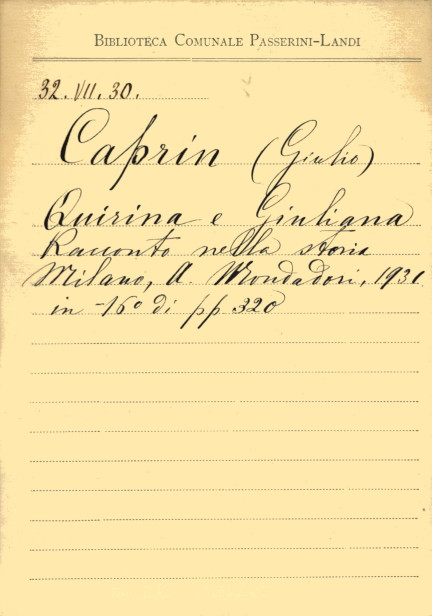 BIBLIOTECA COMUNALE PASSERINI-LANDI
32. VII. 30.
Caprin (Giulio)
Quirina e Giuliana
Racconto nella storia
Milano, A. Mondadori, 1931
in-16° di pp 320